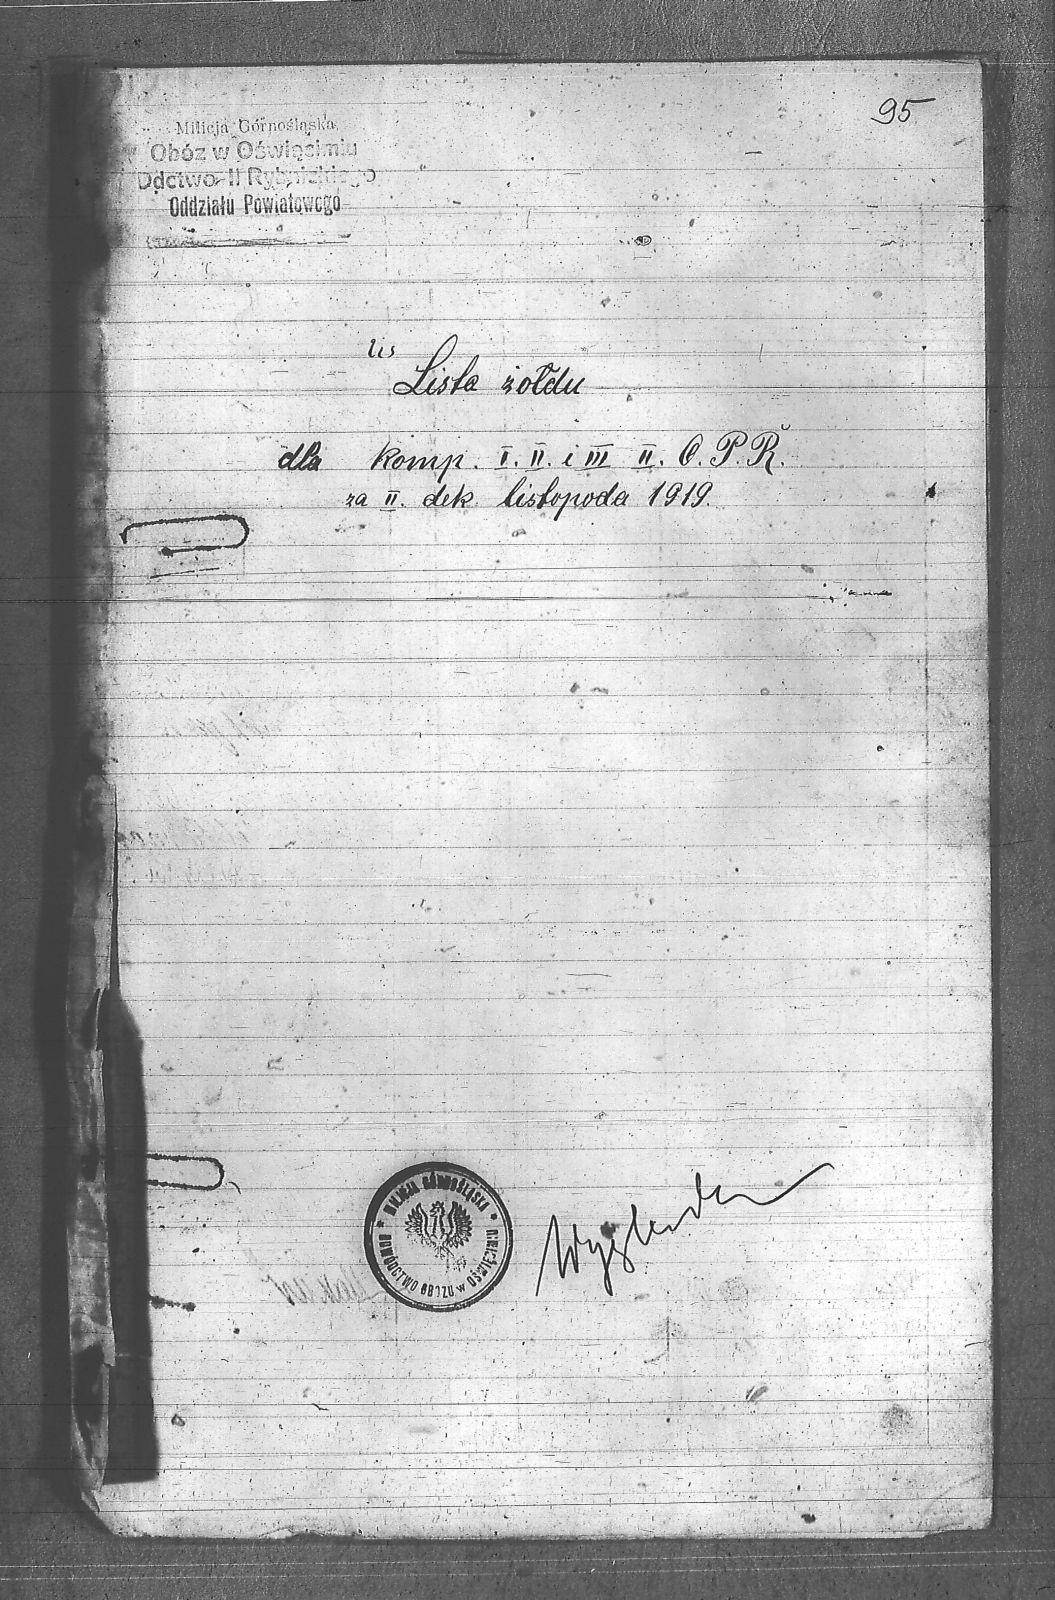 95
Milicja Górnośląska
Obóz w Oświęcimiu
Ddctwo II Rybnickiego
Oddziału Powiatowego
Lis
Lista żołdu
dla komp. I. II. i III II. O. P. R.
za II. dek. listopada 1919.
MILICJA GÓRNOŚLĄSKA
DOWÓDCTWO OBOZU w OŚWIĘCIMIU
Wyglenda